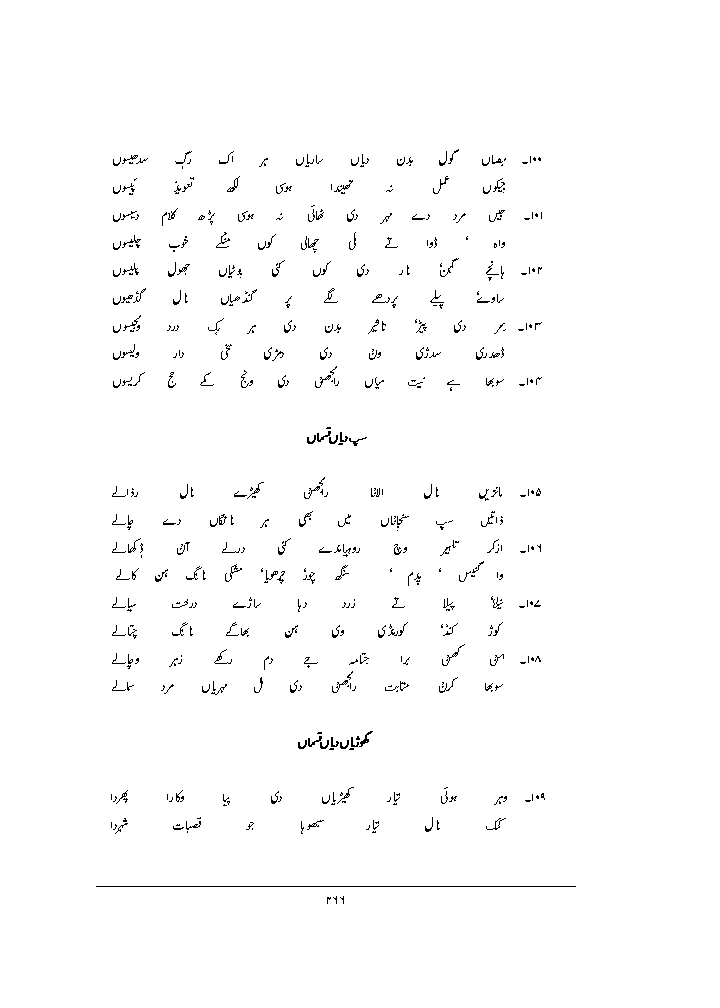 ۱۰۰۔ بصاں کول بدن دیاں ساریاں ہر اک رگ سدھیسوں
جیکوں عمل نہ تھیندا ہوسی لکھ تعویذ پیسوں
۱۰۱۔ جیں مرد دے مہر دی ٹھائی نہ ہوسی پڑھ کلام دیسوں
واہ ‘ ڈوا تے ملی چھالی کوں منگے خوب چلیسوں
۱۰۲۔ نار دی کوں کئی بوٹیاں جھول پلیسوں
ساوے پیلے پردھے لگے پر گنڈھیاں نال گڈھیوں
۱۰۳۔ سر دی پیڑ تاثیر بدن دی ہر ہک درد ونجیسوں
سدڑی ون دی دھڑی دار ولیسوں
۱۰۴۔ سوبھا ہے نیت میاں رانجھنی دی ونج مکے حج کریسوں
سپ دیاں قسماں
۱۰۵۔ نال الانا رانجھنی کھیڑے نال رڈالے
ذاتیں سپ سنجاناں میں بھی ہر نانگاں دے چالے
۱۰۶۔ ازکر تلہیر وچ روہیاندے کئی درلے آن ڈکھالے
وا ‘ پدم ‘ سنگھ چوڑ مشکی نانگ ہن کالے
۱۰۷۔ نیلا پیلا تے زرد دہا ساڑے درخت سیالے
کوڑ کنڈ کوریڈی وی ہن بھاگے نانگ چتالے
۱۰۸۔ کھنی برا جے دم رکھے زہر وچالے
سوبھا کرن متابت رانجھنی دی مل مہریاں مرد سالے
گھوڑیاں دیاں قسماں
۱۰۹۔ وہر ہوئی تیار کھیڑیاں دی پیا وکارا پھردا
کمک نال تیار سبھوہا جو قصبات شہردا
۳۶۶